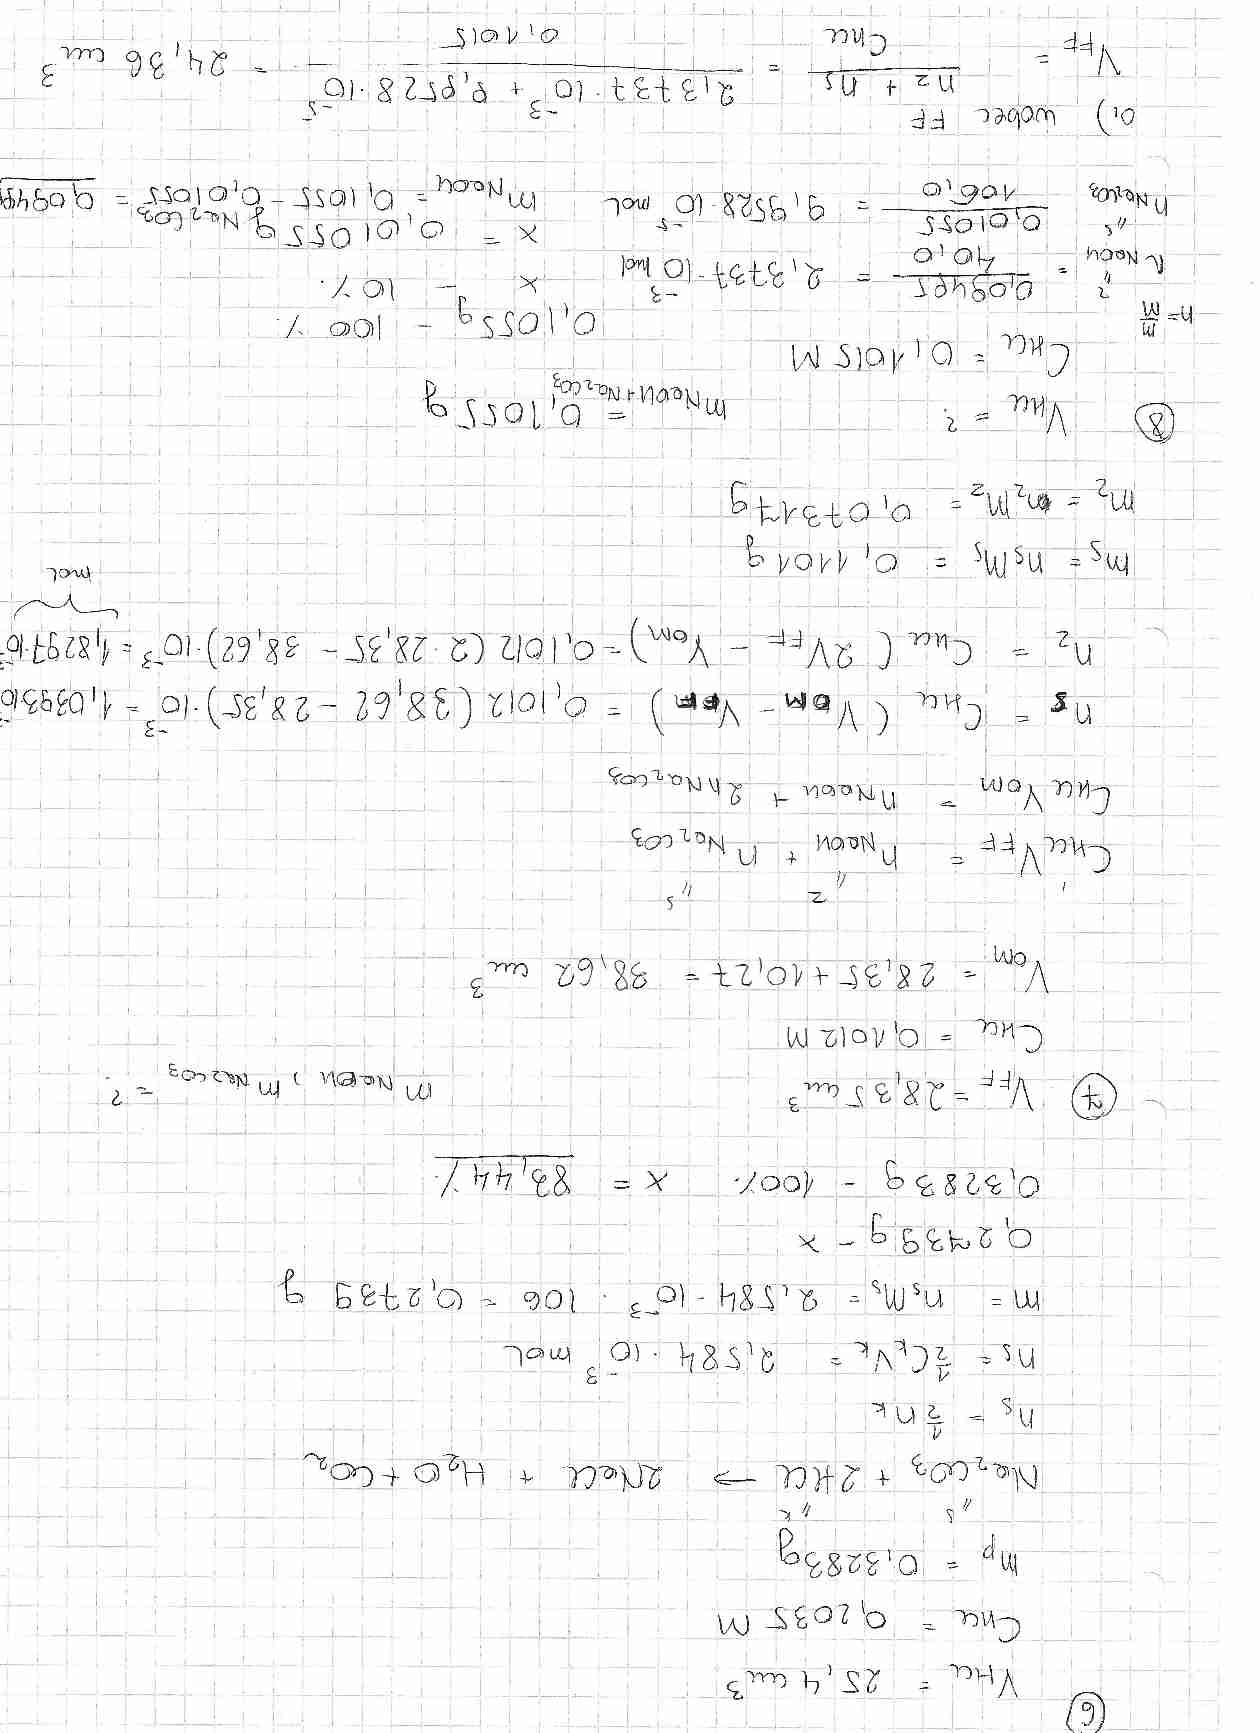 ⑥
V_HCl = 25,4 cm³
C_HCl = 0,2035 M
m_p = 0,3283 g
"s "k
Na₂CO₃ + 2HCl → 2NaCl + H₂O + CO₂
n_s = ½ n_k
n_s = ½ C_k V_k = 2,584 · 10⁻³ mol
m = n_s M_s = 2,584 · 10⁻³ · 106 = 0,2739 g
0,2739 g – x
0,3283 g – 100% x = 83,44%
⑦ V_FF = 28,35 cm³ m_NaOH, m_Na₂CO₃ = ?
C_HCl = 0,1012 M
V_om = 28,35 + 10,27 = 38,62 cm³
"z "s
C_HCl V_FF = n_NaOH + n_Na₂CO₃
C_HCl V_om = n_NaOH + 2n_Na₂CO₃
n_s = C_HCl (V_om – V_FF) = 0,1012 (38,62 – 28,35) · 10⁻³ = 1,0393·10
n_z = C_HCl (2V_FF – V_om) = 0,1012 (2 · 28,35 – 38,62) · 10⁻³ = 1,8297·10⁻³
mol
m_s = n_s M_s = 0,1101 g
m_z = n_z M_z = 0,07317 g
⑧ V_HCl = ? m_NaOH+Na₂CO₃ = 0,1055 g
C_HCl = 0,1015 M
n = m/M 0,1055 g – 100 %
"z n_NaOH = 0,09495/40,0 = 2,3737 · 10⁻³ mol x – 10 %
x = 0,01055 g Na₂CO₃
"s n_Na₂CO₃ = 0,01055/106,0 = 9,9528 · 10⁻⁵ mol m_NaOH = 0,1055 – 0,01055 = 0,09495
a) wobec FF
V_FF = (n_z + n_s)/C_HCl = (2,3737 · 10⁻³ + 9,9528 · 10⁻⁵)/0,1015 = 24,36 cm³